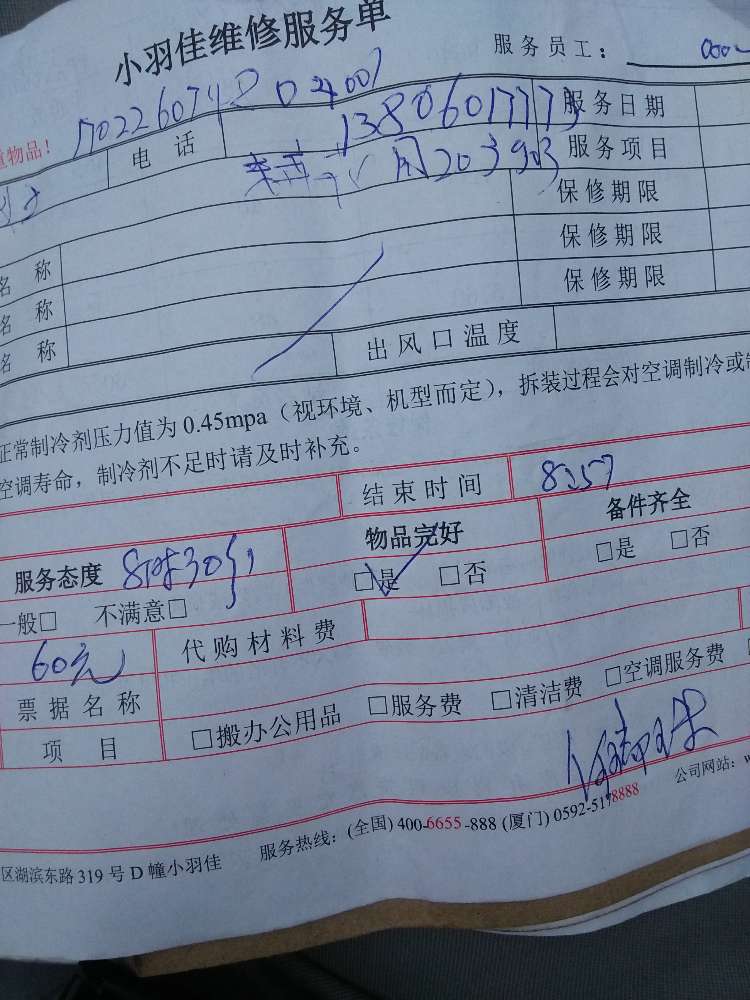 小羽佳维修服务单
服务员工：
物品！
电话 13806017773 服务日期
用203903 服务项目
保修期限
名称 保修期限
名称 保修期限
名称 出风口温度
正常制冷剂压力值为 0.45mpa（视环境、机型而定），拆装过程会对空调制冷或制
空调寿命，制冷剂不足时请及时补充。
结束时间 8:57
服务态度 8时30分 物品完好 备件齐全
一般□ 不满意□ □是 □否 □是 □否
60元 代购材料费
票据名称
项目 □搬办公用品 □服务费 □清洁费 □空调服务费
区湖滨东路 319 号 D 幢小羽佳 服务热线：(全国) 400-6655-888 (厦门) 0592-5178888 公司网站：w